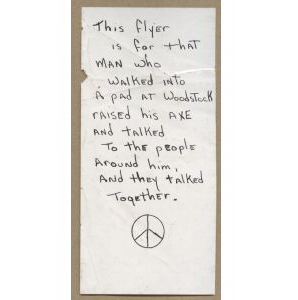 This flyer
is for that
MAN who
WALKED INTO
A pad AT WOODSTOCK
RAISED his AXE
AND tALKED
To the people
AROUND him,
AND they tALKED
Together.